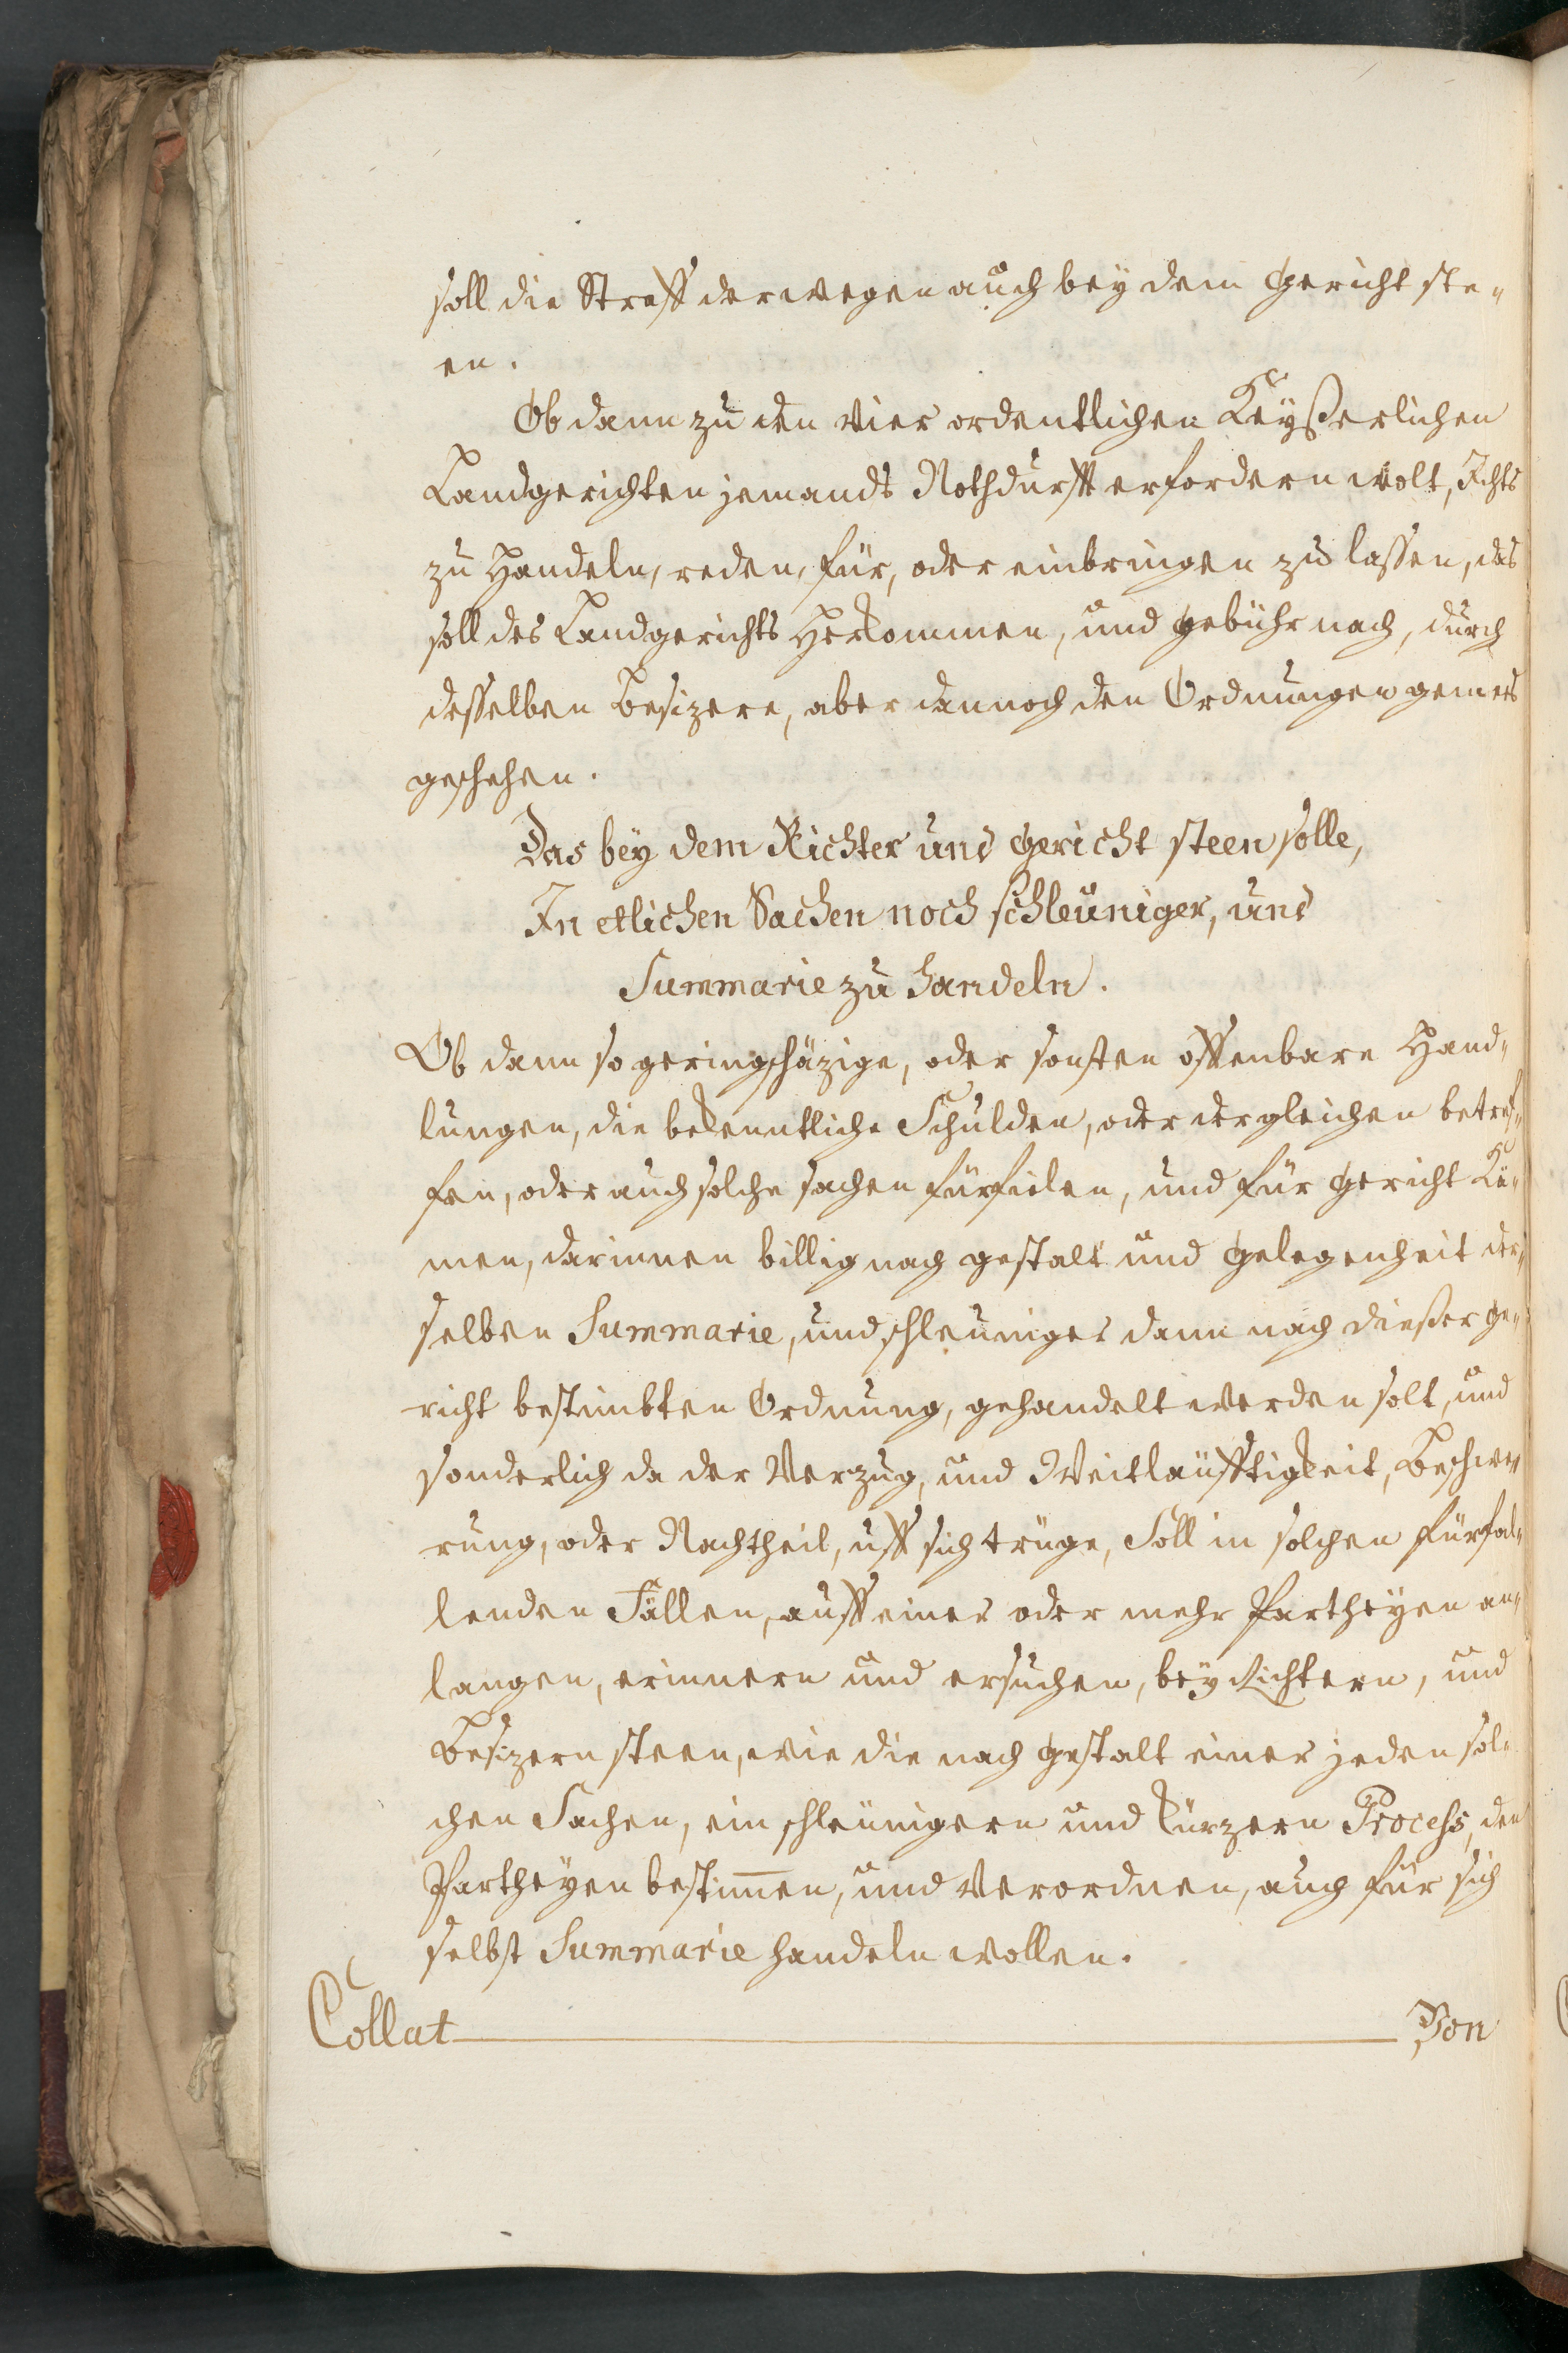 soll die Straff derwegen auch bey dem Gericht ste„
en.
Ob dann zu den vier ordentlichen Keyßerlichen
Landgerichten jemands Nothdurfft erfordern wolt, Ichts
zu Handeln, reden, für, oder einbringen zu lassen, das
soll des Landgerichts Herkommen, und gebühr nach, durch
desselben Besizere, aber dannoch den Ordnungen gemes
geschehen.
Das bey dem Richter und Gericht steen solle,
In etlichen Sachen noch schleuniger, und
Summarie zu handeln.
Ob dann so geringschäzige, oder sonsten offenbare Hand„
lungen, die bekenntliche Schulden, oder dergleichen betref„
fen, oder auch solche sachen fürfielen, und für Gericht Kä„
men, darinnen billig nach gestalt und gelegenheit der„
selben Summarie, und schleuniger dann nach dießer Ge„
richt bestimbten Ordnung, gehandelt werden solt, und
sonderlich da der Verzug, und Weitläufftigkeit, Beschwe„
rung, oder Nachtheil, uff sich trüge, Soll in solchen fürfal„
lenden Fällen, auff einer oder mehr Partheyen an„
langen, erinnern und ersuchen, bey Richtern, und
Besizern steen, wie die nach gestalt einer jeden sol„
chen Sachen, ein schleunigern und kürzern Process, den
Partheyen bestim̅en, und verordnen, auch für sich
selbst Summarie handeln wollen.
Collat Von